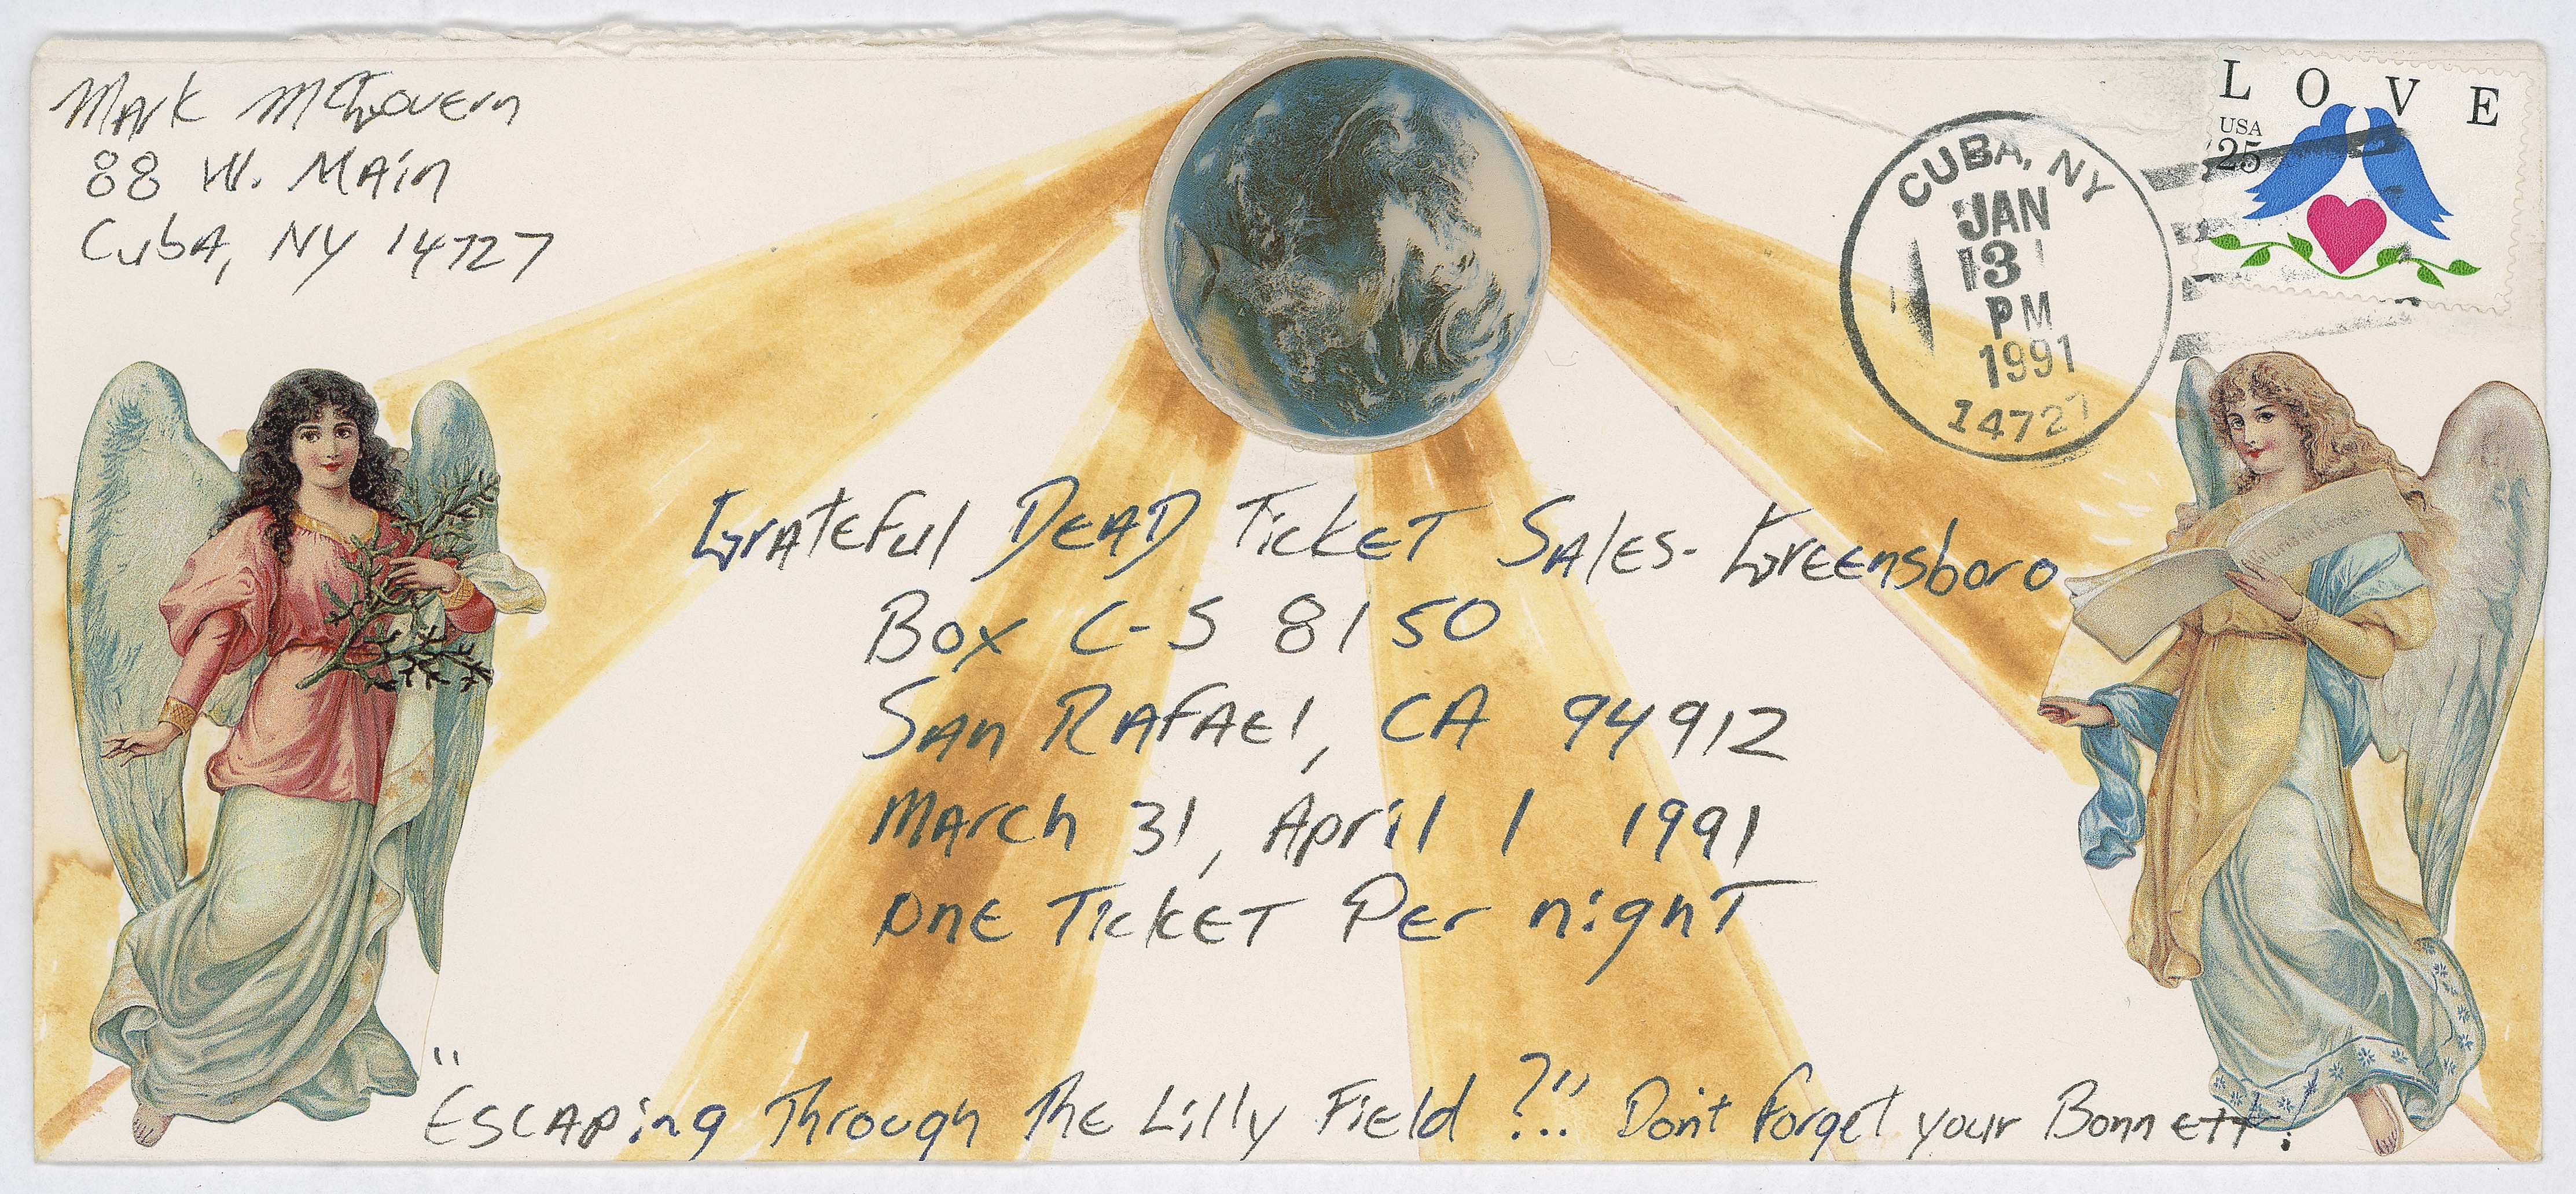 Mark McGovern
88 W. Main
Cuba, NY 14727
LOVE
USA
25
CUBA, NY
JAN
13
PM
1991
14727
Grateful Dead Ticket Sales - Greensboro
Box C-S 8150
San Rafael, CA 94912
March 31, April 1 1991
One Ticket Per night
"Escaping Through The Lilly Field ?!." Don't forget your Bonnett!